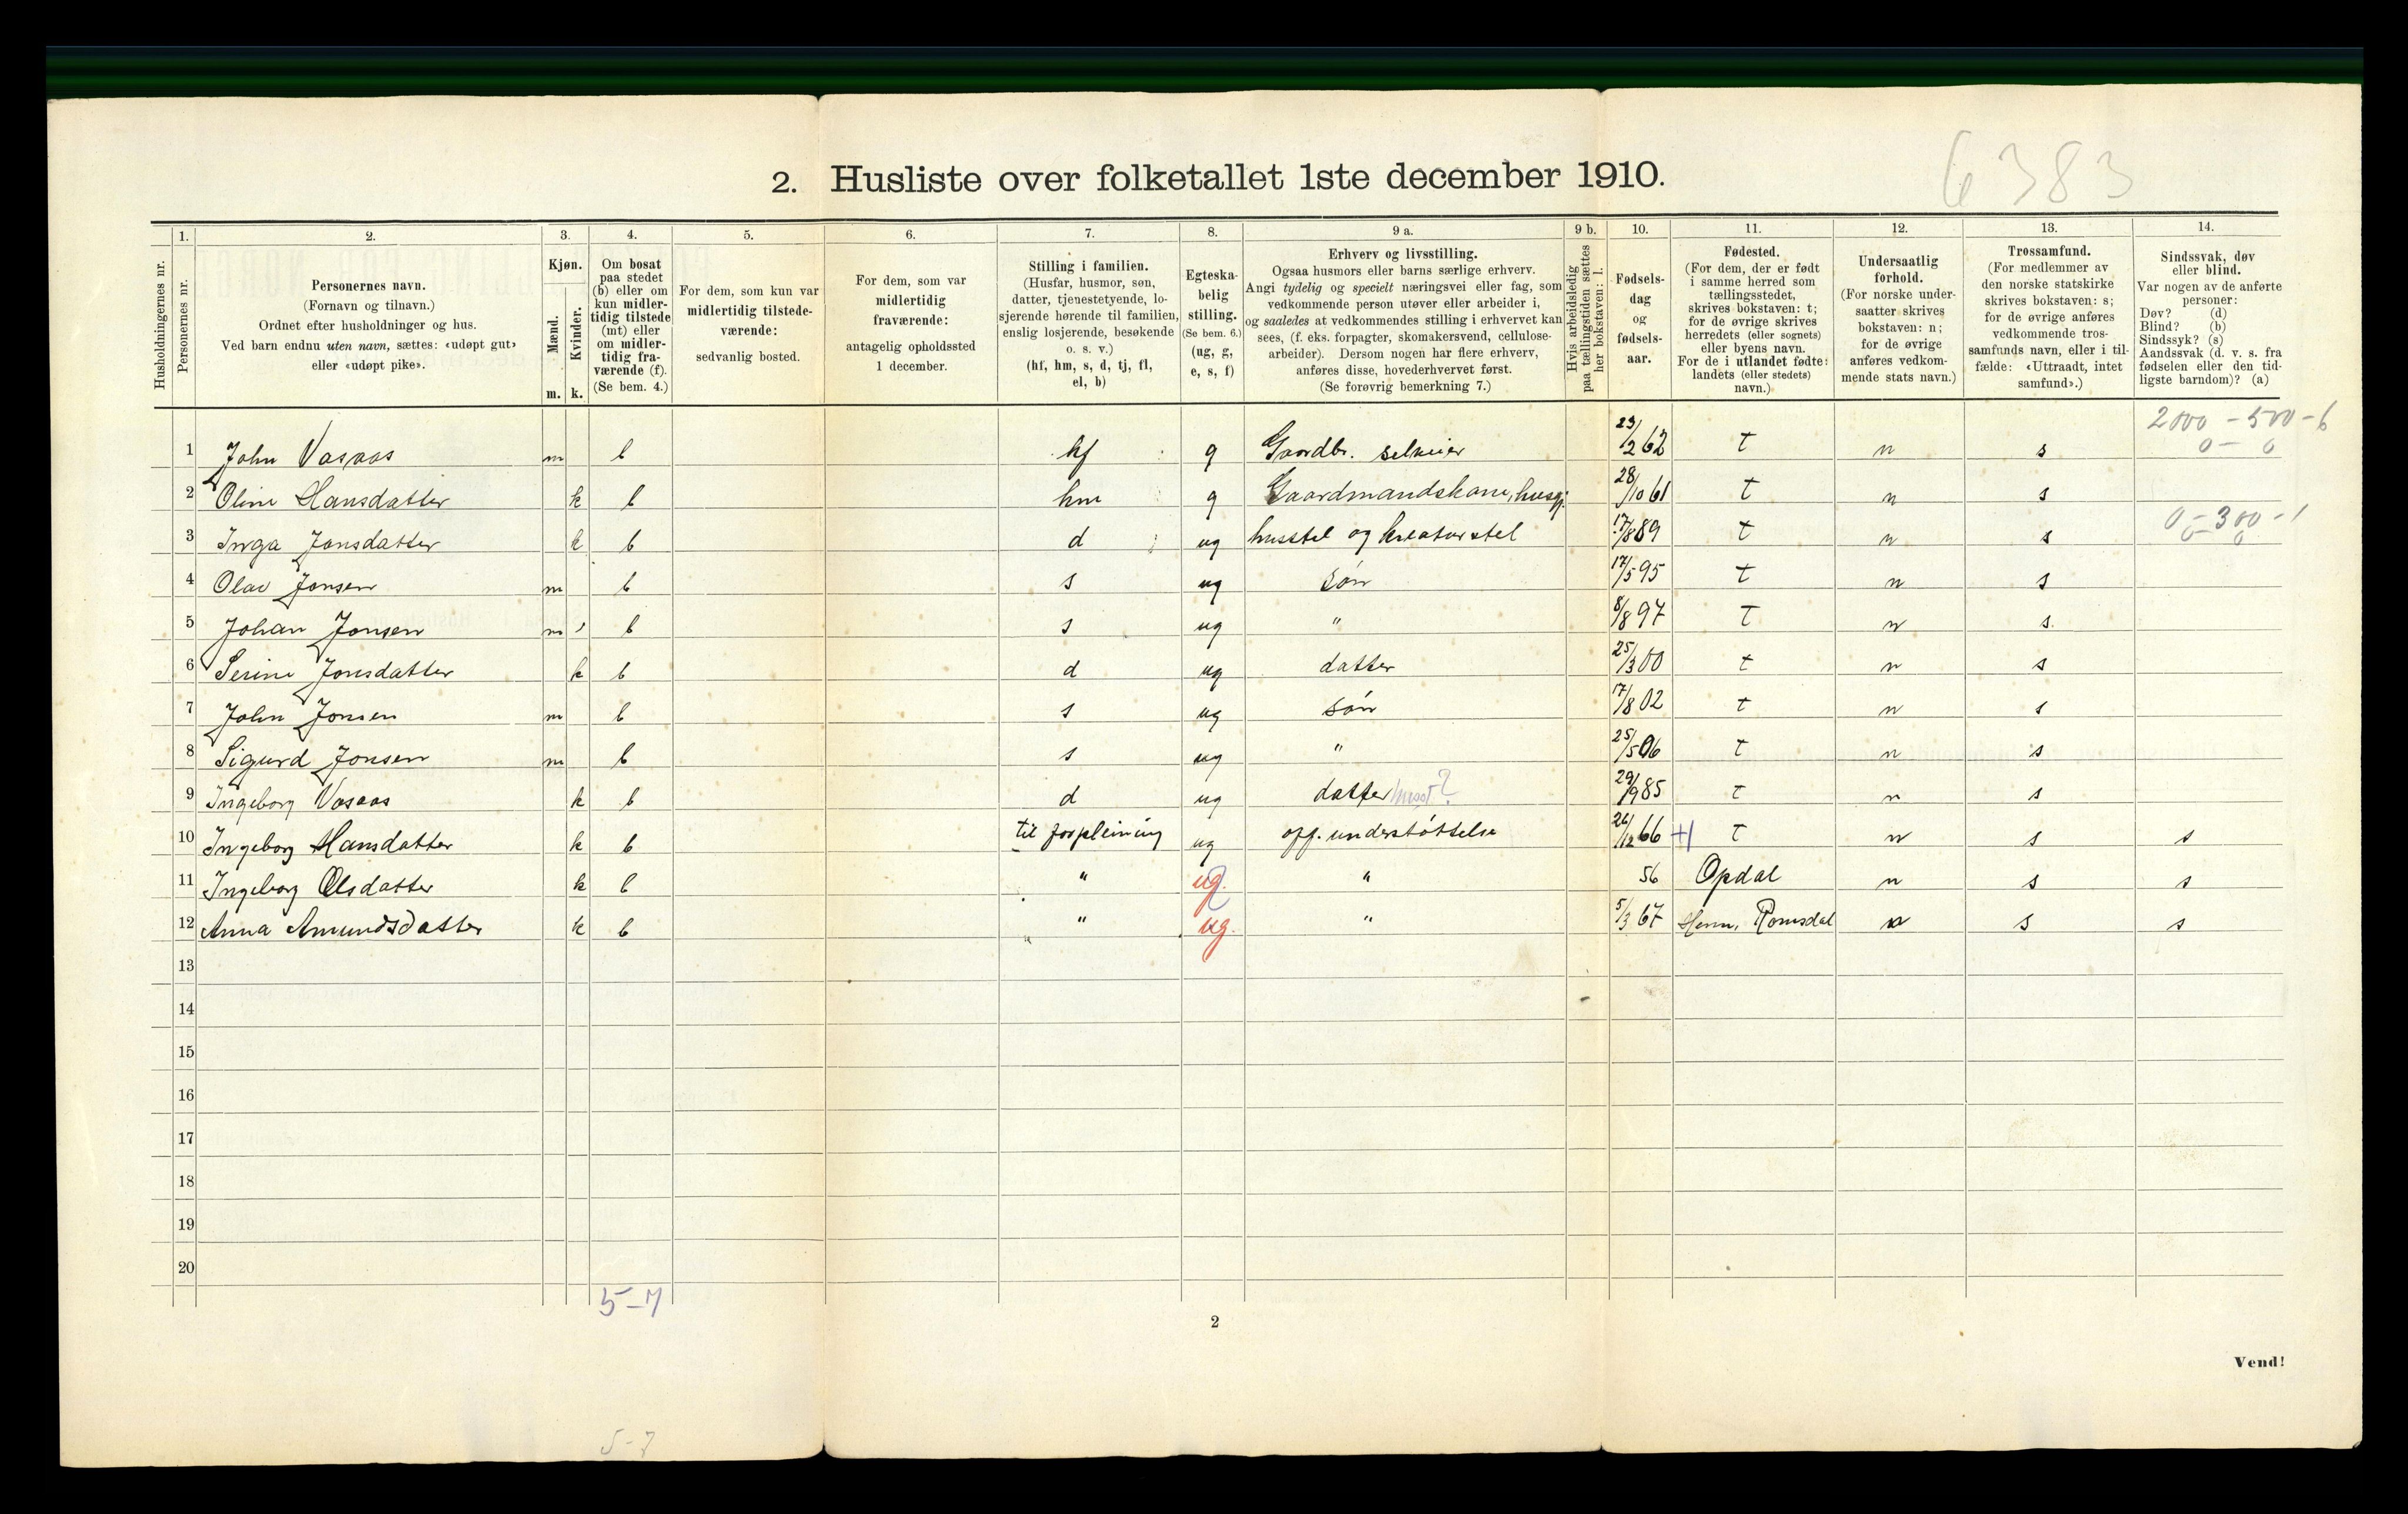 6383
2. Husliste over folketallet 1ste december 1910.
Husholdningernes nr.
1.
Personernes nr.
2.
Personernes navn.
(Fornavn og tilnavn.)
Ordnet efter husholdninger og hus.
Ved barn endnu uten navn, sættes: «udøpt gut»
eller «udøpt pike».
3.
Kjøn.
Mænd.
Kvinder.
m. k.
4.
Om bosat
paa stedet
(b) eller om
kun midler-
tidig tilstede
(mt) eller
om midler-
tidig fra-
værende (f).
(Se bem. 4.)
5.
For dem, som kun var
midlertidig tilstede-
værende:
sedvanlig bosted.
6.
For dem, som var
midlertidig
fraværende:
antagelig opholdssted
1 december.
7.
Stilling i familien.
(Husfar, husmor, søn,
datter, tjenestetyende, lo-
sjerende hørende til familien,
enslig losjerende, besøkende
o. s. v.)
(hf, hm, s, d, tj, fl,
el, b)
8.
Egteska-
belig
stilling.
(Se bem. 6.)
(ug, g,
e, s, f)
9 a.
Erhverv og livsstilling.
Ogsaa husmors eller barns særlige erhverv.
Angi tydelig og specielt næringsvei eller fag, som
vedkommende person utøver eller arbeider i,
og saaledes at vedkommendes stilling i erhvervet kan
sees, (f. eks. forpagter, skomakersvend, cellulose-
arbeider). Dersom nogen har flere erhverv,
anføres disse, hovederhvervet først.
(Se forøvrig bemerkning 7.)
9 b.
Hvis arbeidsledig
paa tællingstiden sættes
her bokstaven: l.
10.
Fødsels-
dag
og
fødsels-
aar.
11.
Fødested.
(For dem, der er født
i samme herred som
tællingsstedet,
skrives bokstaven: t;
for de øvrige skrives
herredets (eller sognets)
eller byens navn.
For de i utlandet fødte:
landets (eller stedets)
navn.)
12.
Undersaatlig
forhold.
(For norske under-
saatter skrives
bokstaven: n;
for de øvrige
anføres vedkom-
mende stats navn.)
13.
Trossamfund.
(For medlemmer av
den norske statskirke
skrives bokstaven: s;
for de øvrige anføres
vedkommende tros-
samfunds navn, eller i til-
fælde: «Uttraadt, intet
samfund».)
14.
Sindssvak, døv
eller blind.
Var nogen av de anførte
personer:
Døv? (d)
Blind? (b)
Sindssyk? (s)
Aandssvak (d. v. s. fra
fødselen eller den tid-
ligste barndom)? (a)
2000 - 500 - 6
0 - 0
1 John Vasaas m b hf g Gaardbr. selveier 23/2 62 t n s
2 Oline Hansdatter k b hm g Gaardmandskone, husgj. 28/10 61 t n s
0 - 300 - 1
0 0
3 Inga Jonsdatter k b d ug husstel og kreaturstel 17/8 89 t n s
4 Olav Jonsen m b s ug søn 17/5 95 t n s
5 Johan Jonsen m b s ug " 8/8 97 t n s
6 Serine Jonsdatter k b d ug datter 25/3 00 t n s
7 John Jonsen m b s ug søn 17/8 02 t n s
8 Sigurd Jonsen m b s ug " 25/5 06 t n s
9 Ingeborg Vasaas k b d ug datter husst? 29/9 85 t n s
10 Ingeborg Hansdatter k b til forpleining ug off. understøttelse 26/12 66 +1 t n s s
11 Ingeborg Olsdatter k b " ug. " 56 Opdal n s s
12 Anna Amundsdatter k b " ug. " 5/3 67 Hemn, Romsdal n s s
13
14
15
16
17
18
19
20
5-7
2
Vend!
5-7